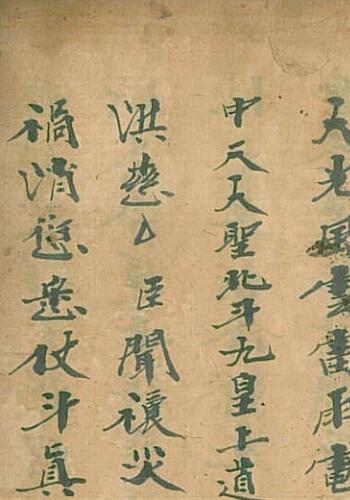 天光風雲雷電
中天大聖北斗九皇上道
洪慈厶臣聞禳災
禍消愆悉仗斗真